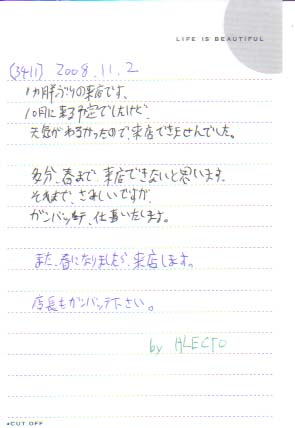 LIFE IS BEAUTIFUL
(3411) 2008.11.2
1ヵ月半ぶりの来店です。
10月に来る予定でしたけど、
天気がわるかったので、来店できませんでした。
多分、春まで、来店できないと思います。
それまで、さみしいですが、
ガンバッテ、仕事いたします。
また、春になりましたら、来店します。
店長もガンバッテ下さい。
by ALECTO
CUT OFF